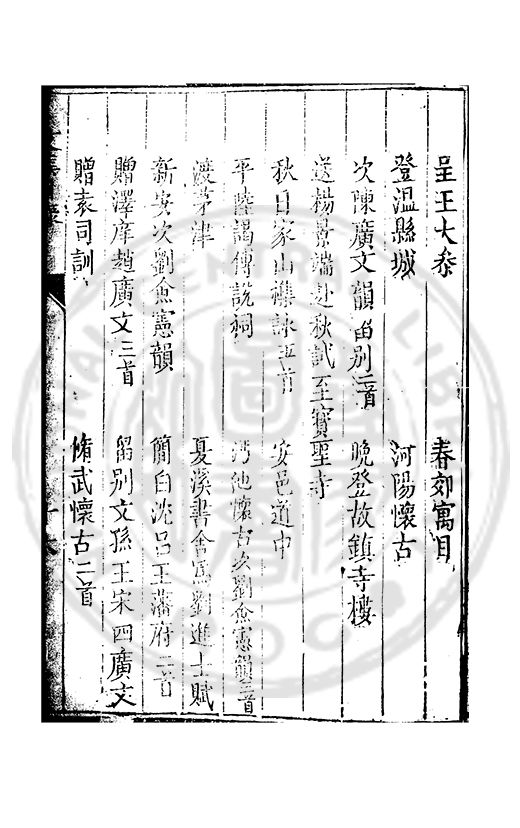 呈王大叅 春郊寓目
登溫縣城 河陽懷古
次陳廣文韻留别二首 晚登故鎮寺樓
送楊景端赴秋試至寶聖寺
秋日家山襍詠五首 安邑道中
平陸謁傅說祠 沔池懷古次劉僉憲韻二首
渡茅津 夏溪書舍爲劉進士賦
新安次劉僉憲韻 簡白沈吕王藩府二首
贈澤庠趙廣文三首 留别文孫王宋四廣文
贈袁司訓 脩武懷古二首